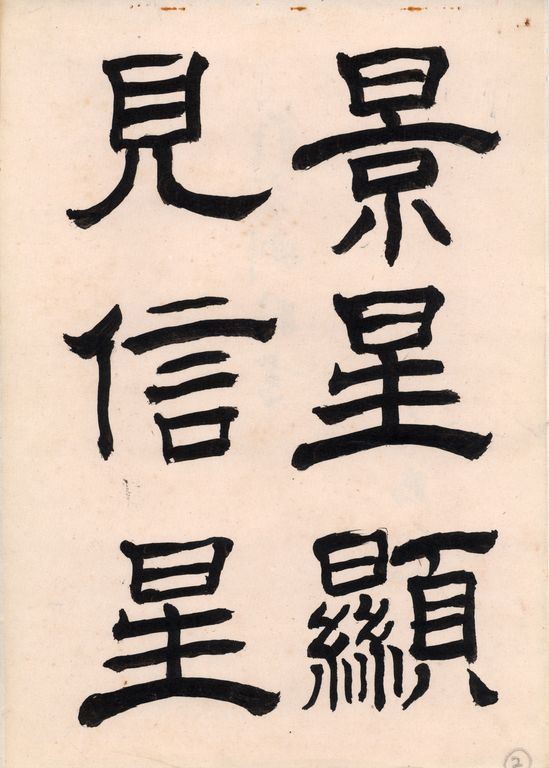 景星顯
見信星
2